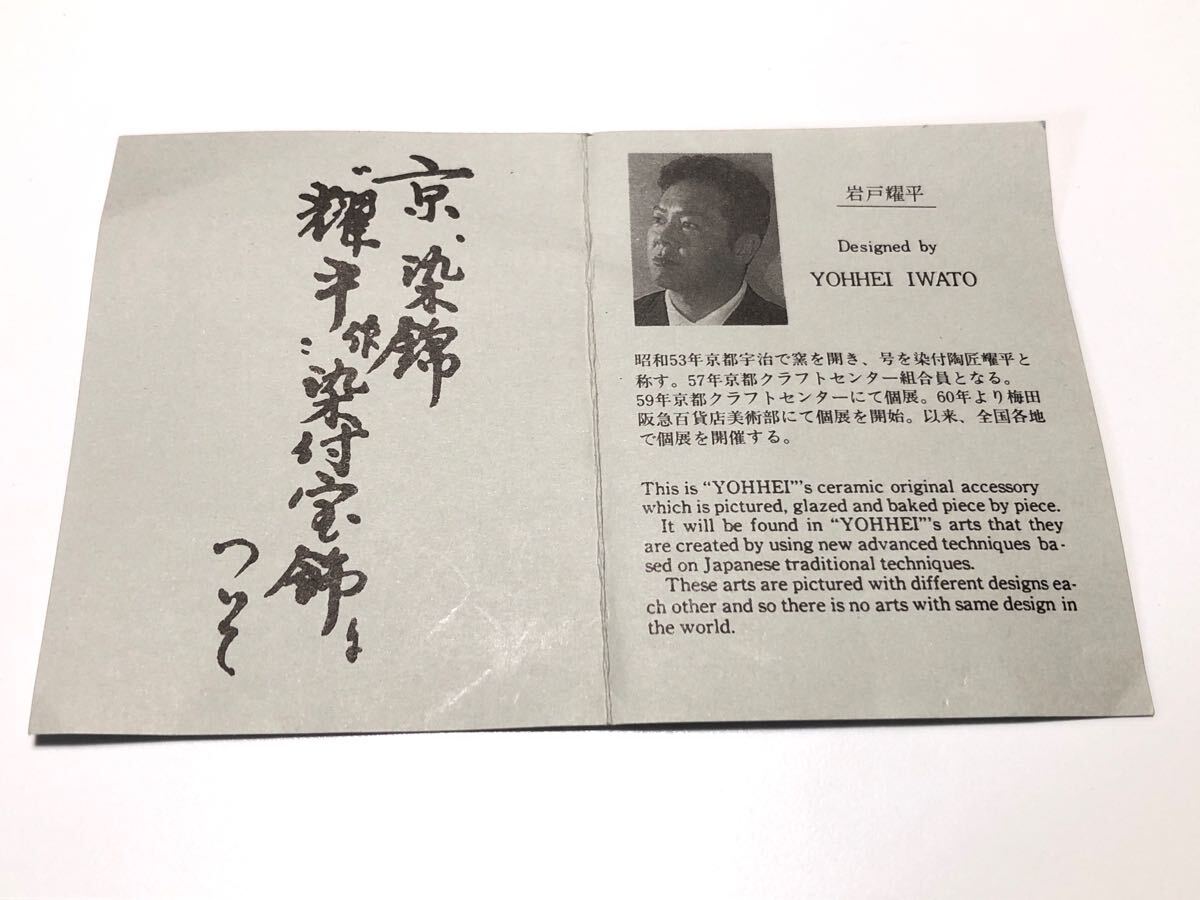 京、染錦
“耀平”作
染付宝飾に
ついて
岩戸耀平
Designed by
YOHHEI IWATO
昭和53年京都宇治で窯を開き、号を染付陶匠耀平と
称す。57年京都クラフトセンター組合員となる。
59年京都クラフトセンターにて個展。60年より梅田
阪急百貨店美術部にて個展を開始。以来、全国各地
で個展を開催する。
This is “YOHHEI”'s ceramic original accessory
which is pictured, glazed and baked piece by piece.
It will be found in “YOHHEI”'s arts that they
are created by using new advanced techniques ba-
sed on Japanese traditional techniques.
These arts are pictured with different designs ea-
ch other and so there is no arts with same design in
the world.